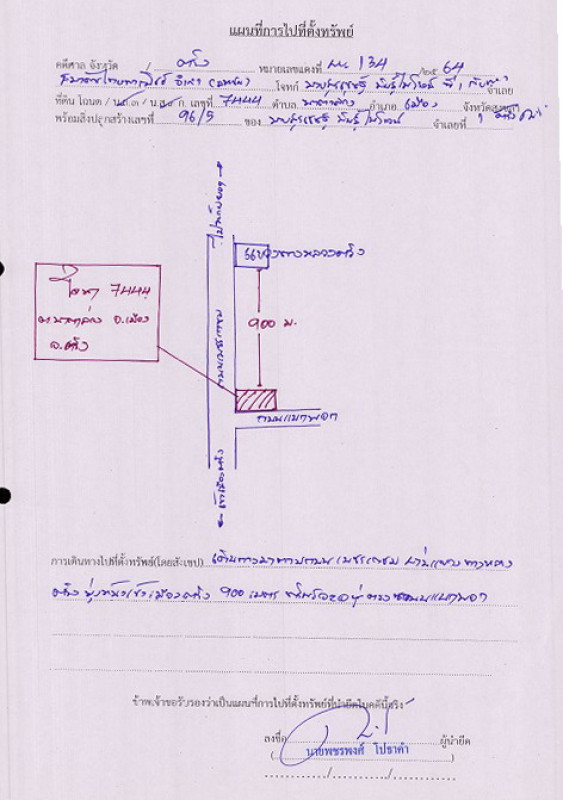 แผนที่การไปที่ตั้งทรัพย์
คดีศาล จังหวัด ตรัง หมายเลขแดงที่ ผบ 134 /๒๕ 64
ธนาคารไทยพาณิชย์ จำกัด (มหาชน) โจทก์ นายสุรเชษฐ์ พันธุ์ไพโรจน์ ที่ 1 กับพวก จำเลย
ที่ดิน โฉนด / น.ส.๓ / น.ส.๓ ก. เลขที่ 7444 ตำบล นาตาล่วง อำเภอ เมือง จังหวัด ตรัง
พร้อมสิ่งปลูกสร้างเลขที่ 96/5 ของ นายสุรเชษฐ์ พันธุ์ไพโรจน์ จำเลยที่ 1
ไปห้วยยอด
แขวงทางหลวงตรัง
โฉนด 7444
ต.นาตาล่วง อ.เมือง
จ.ตรัง
ถนนเพชรเกษม
900 ม.
ถนน
เข้าเมืองตรัง
การเดินทางไปที่ตั้งทรัพย์(โดยสังเขป) เดินทางมาตามถนนเพชรเกษม ผ่านแขวงทางหลวง
ตรัง มุ่งหน้าเข้าเมืองตรัง 900 เมตร ทรัพย์จะอยู่ ถนน
ข้าพเจ้าขอรับรองว่าเป็นแผนที่การไปที่ตั้งทรัพย์ที่นำยึดในคดีนี้จริง
ลงชื่อ ผู้นำยึด
( นายพชรพงศ์ โปธาคำ )